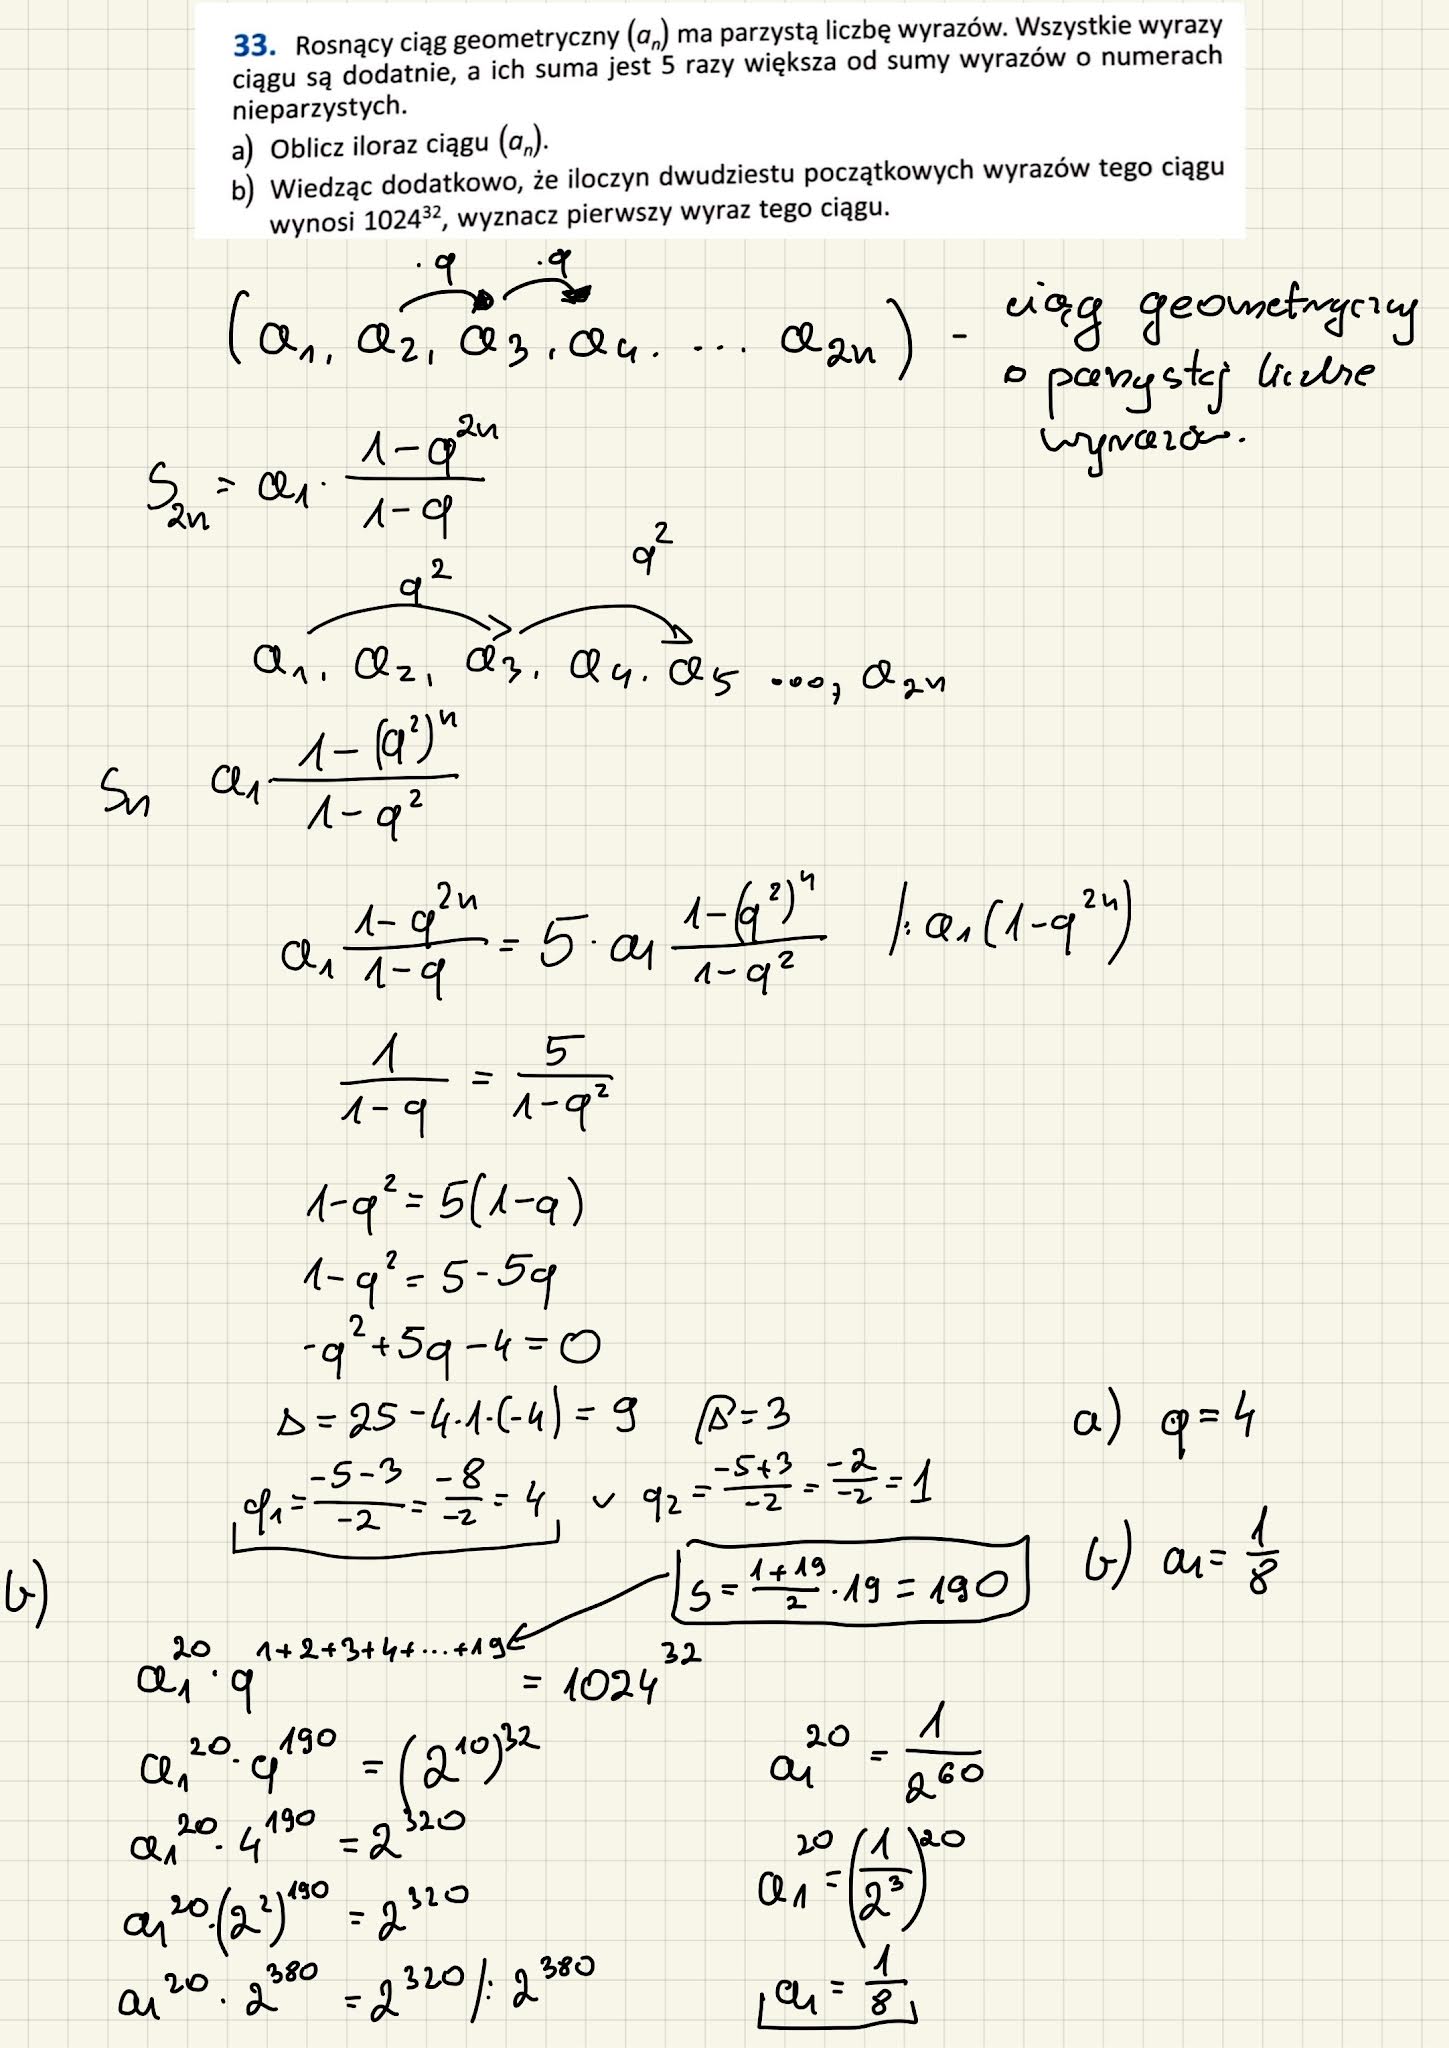 33. Rosnący ciąg geometryczny (aₙ) ma parzystą liczbę wyrazów. Wszystkie wyrazy
ciągu są dodatnie, a ich suma jest 5 razy większa od sumy wyrazów o numerach
nieparzystych.
a) Oblicz iloraz ciągu (aₙ).
b) Wiedząc dodatkowo, że iloczyn dwudziestu początkowych wyrazów tego ciągu
wynosi 1024³², wyznacz pierwszy wyraz tego ciągu.
·q ·q
(a₁, a₂, a₃, a₄, ... a₂ₙ) - ciąg geometryczny
o parzystej liczbie
wyrazów.
S₂ₙ = a₁ · (1-q²ⁿ)/(1-q)
q² q²
a₁, a₂, a₃, a₄, a₅ ..., a₂ₙ
Sₙ a₁ (1-(q²)ⁿ)/(1-q²)
a₁ (1-q²ⁿ)/(1-q) = 5 · a₁ (1-(q²)ⁿ)/(1-q²) /: a₁(1-q²ⁿ)
1/(1-q) = 5/(1-q²)
1-q² = 5(1-q)
1-q² = 5-5q
-q²+5q-4=0
Δ = 25-4·1·(-4) = 9 √Δ=3
q₁ = (-5-3)/-2 = -8/-2 = 4 ∨ q₂ = (-5+3)/-2 = -2/-2 = 1
a) q=4
b) a₁ = 1/8
b)
S = (1+19)/2 · 19 = 190
a₁²⁰ · q¹⁺²⁺³⁺⁴⁺···⁺¹⁹ = 1024³²
a₁²⁰ · q¹⁹⁰ = (2¹⁰)³²
a₁²⁰ · 4¹⁹⁰ = 2³²⁰
a₁²⁰ · (2²)¹⁹⁰ = 2³²⁰
a₁²⁰ · 2³⁸⁰ = 2³²⁰ /: 2³⁸⁰
a₁²⁰ = 1/2⁶⁰
a₁²⁰ = (1/2³)²⁰
a₁ = 1/8